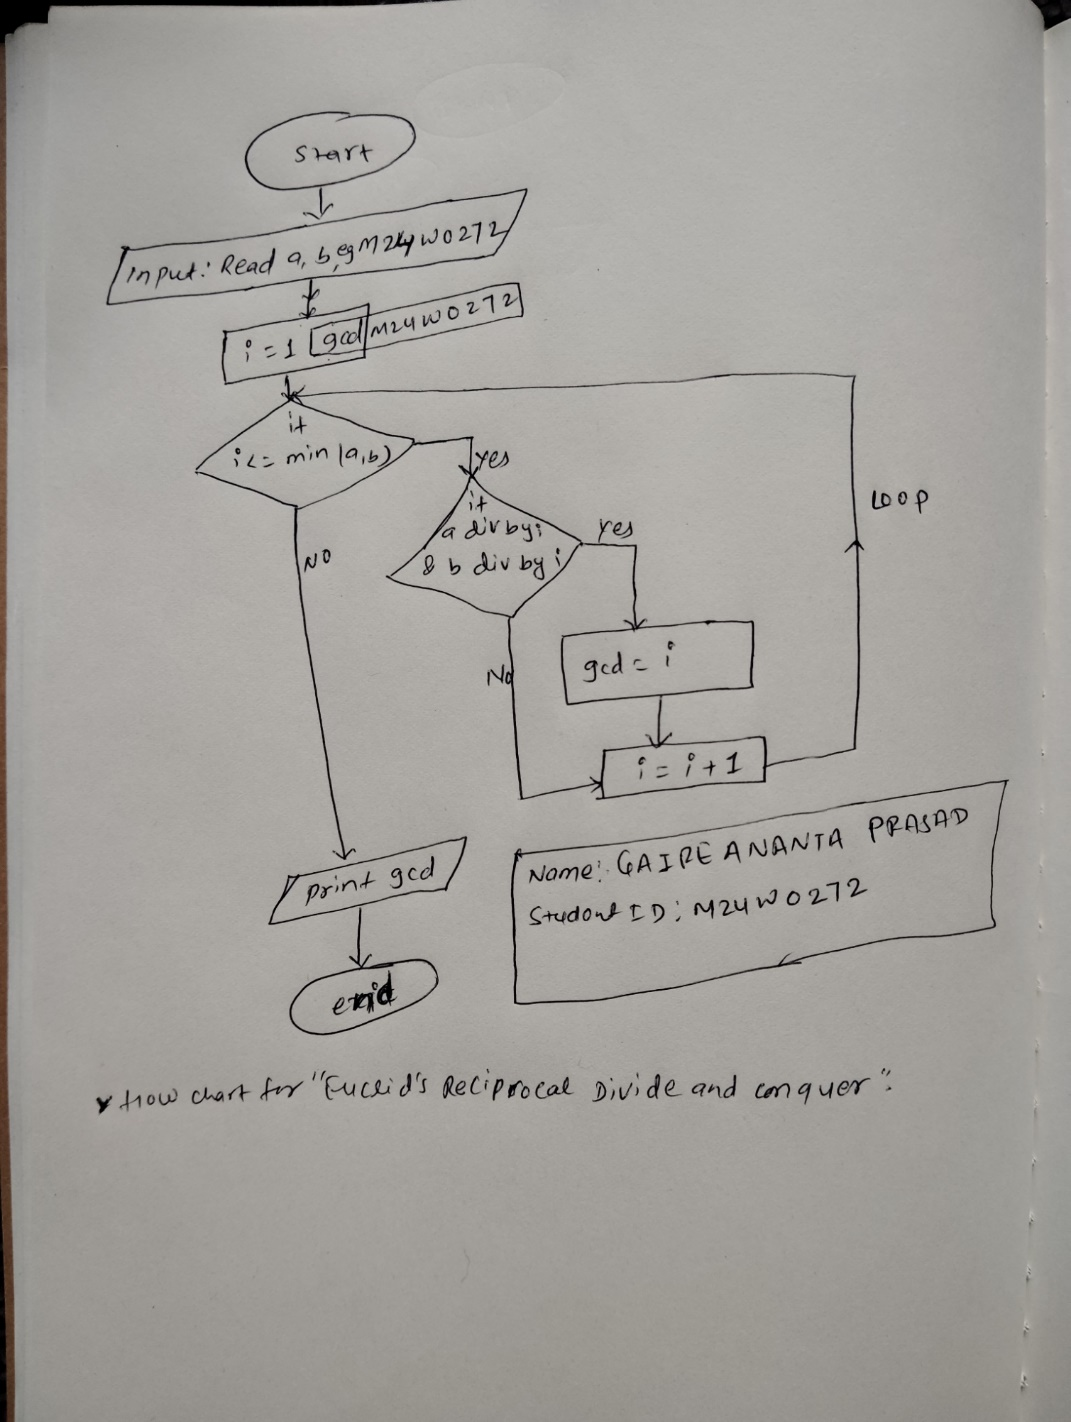 Start
Input: Read a, b eg M24W0272
i = 1 gcd M24W0272
if
i <= min (a,b)
Yes
if
a div by i
& b div by i
Yes
Loop
NO
No
gcd = i
i = i + 1
Name: GAIRE ANANTA PRASAD
Student ID: M24W0272
print gcd
end
flow chart for "Euclid's Reciprocal Divide and conquer".